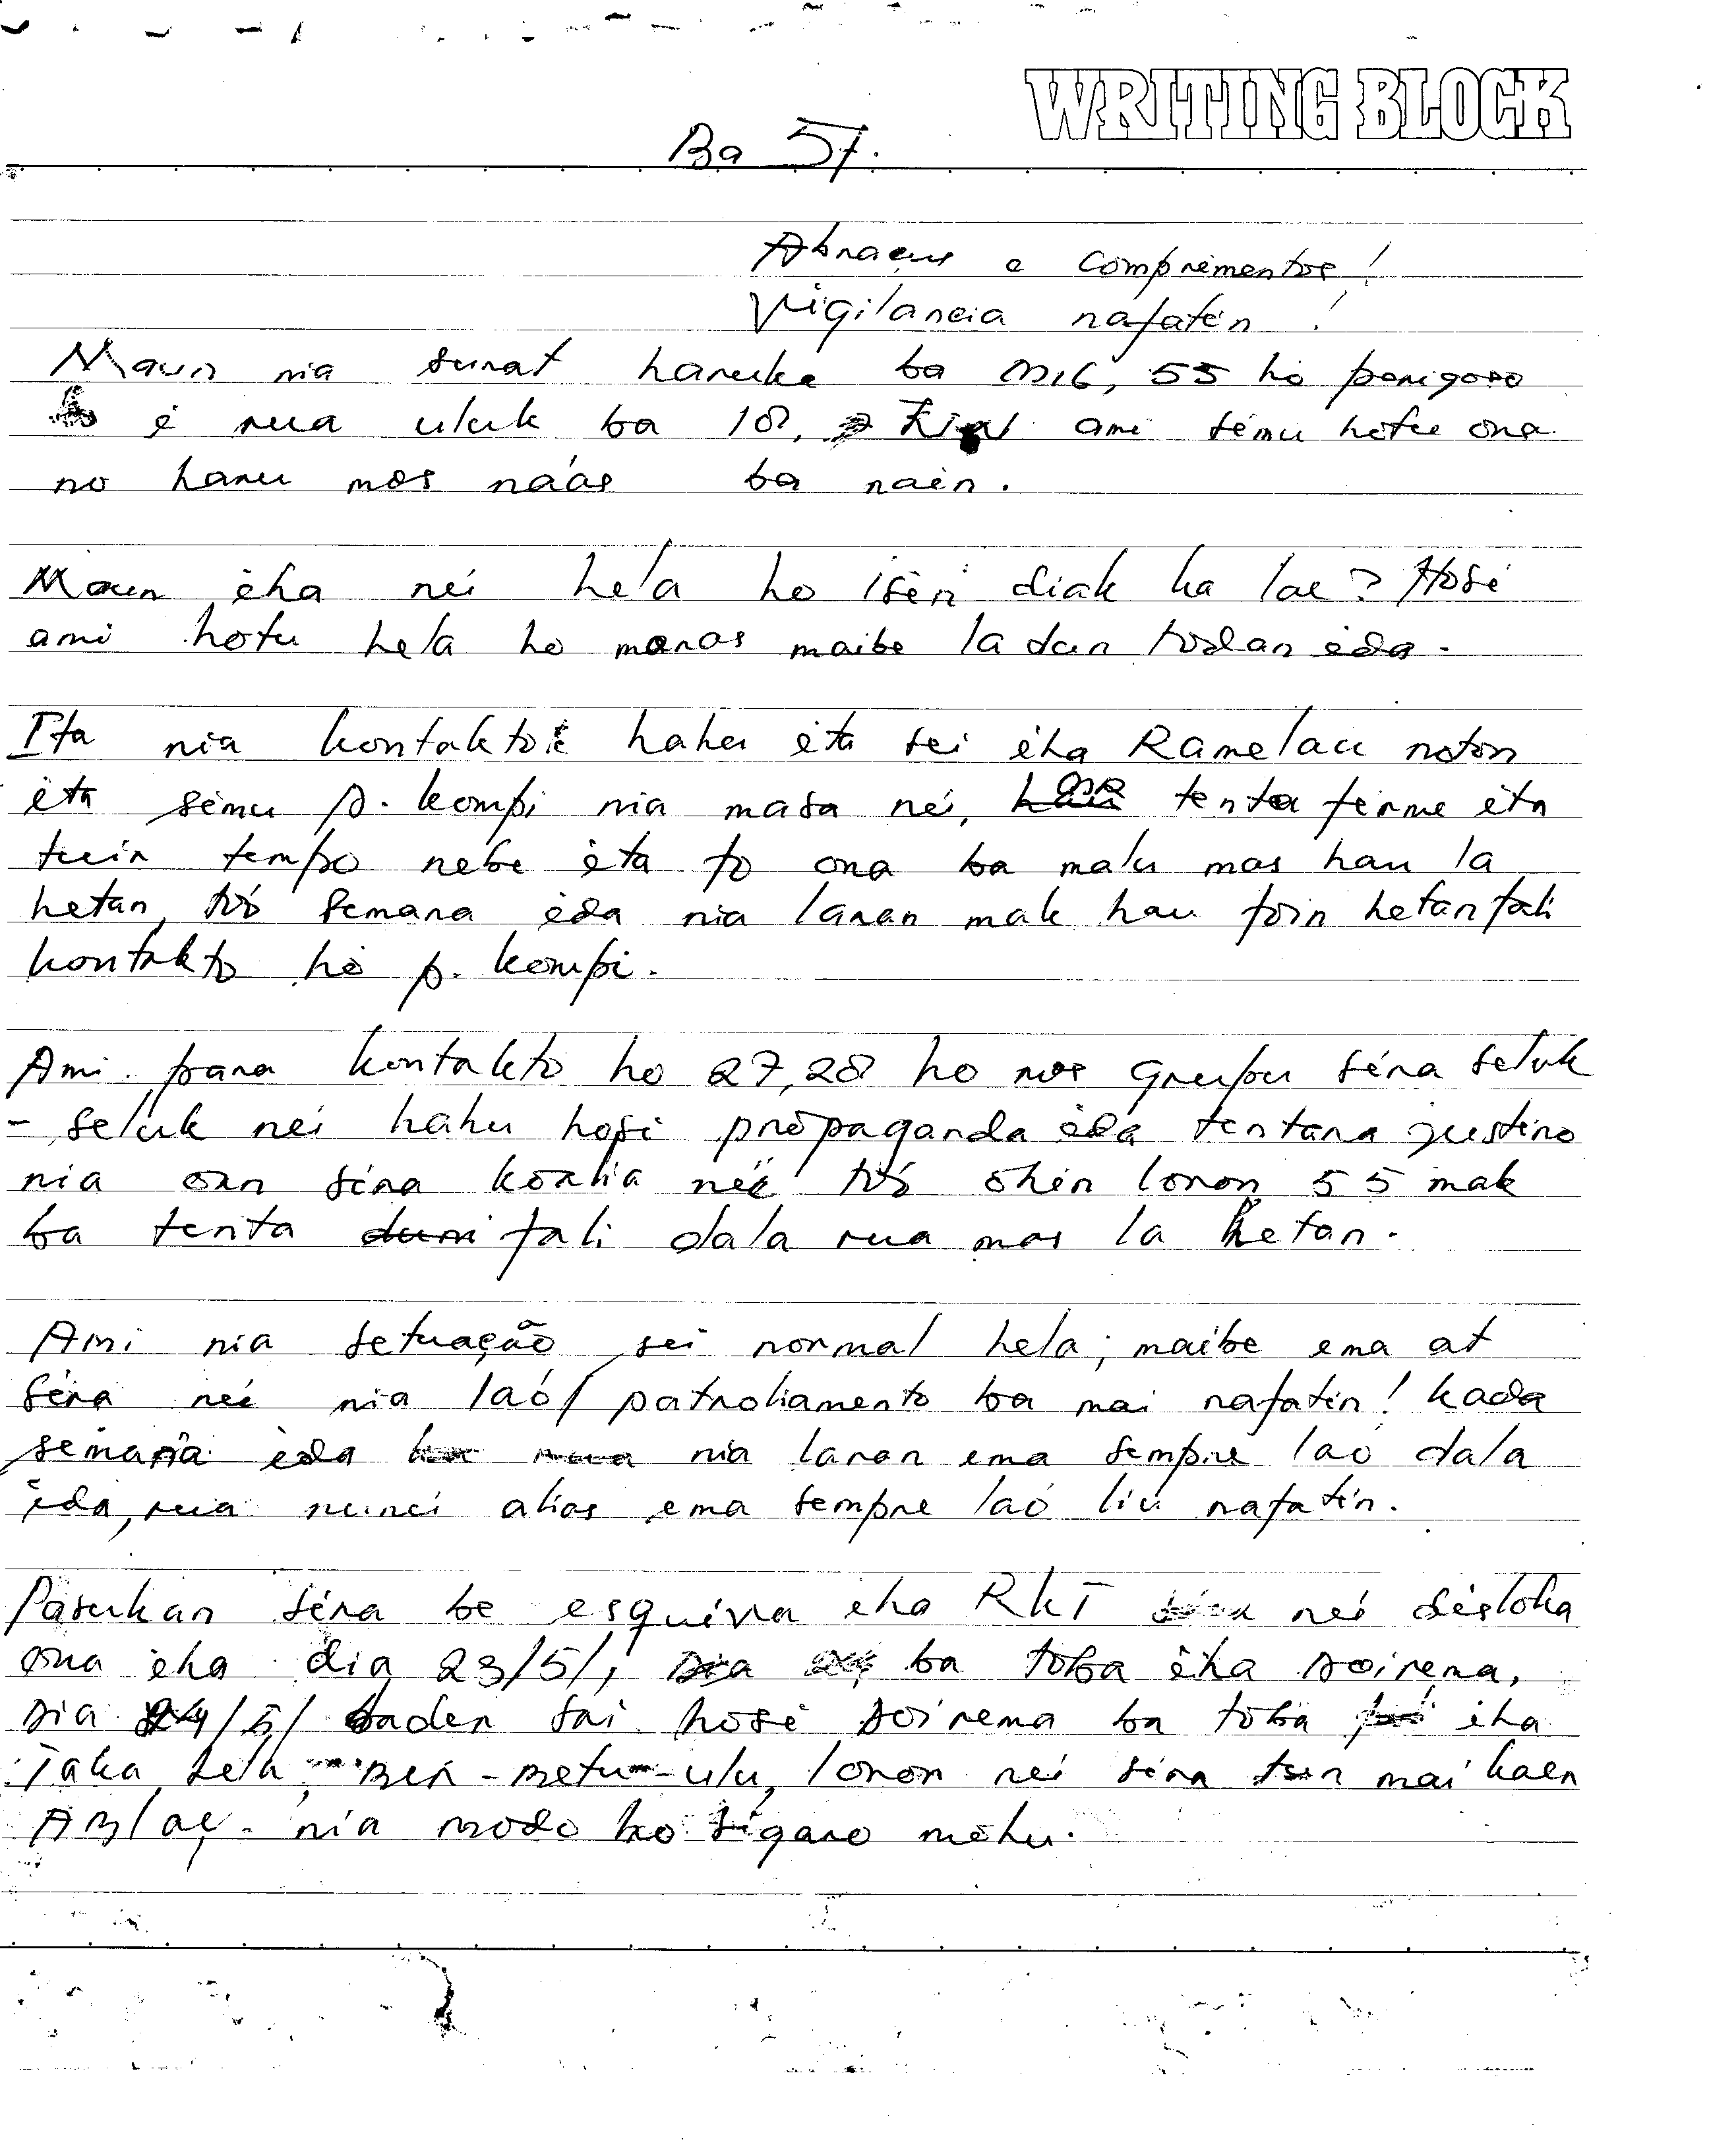 WRITING BLOCK
Ba 57.
Abraçus e comprementos!
Vigilancia nafatén!
Maun nia surat haruka ba M16, 55 ho perigoso
é rua uluk ba 18, ami sému hotu ona
no haru mos náás ba naén.
Maun éha néi hela ho isén diak ka lae? Hosé
ami hotu hela ho manas maibe la dun todan éda.
Ita nia kontakto hahu éta sei éha Ramelau noton
éta sému p. kompi nia masa néi, tenta férme éta
tuir tempo nebe éta to ona ba malu mas hau la
hetan, tó semana éda nia laran mak hau foin hetan fali
kontakto hó p. kompi.
Ami para kontakto ho 27, 28 ho mos grupu séra seluk
- seluk néi hahu hosi propaganda éda tentara justino
nia oan séra koalia néé tó ohin loron 55 mak
ba tenta duni fali dala rua mas la hetan.
Ami nia setuação sei normal hela; maibe ema at
séra néé nia laó/ patroliamento ba mai nafatin! kada
semana éda nia laran ema sempre lao dala
éda, rua nunéi alias ema sempre laó liu nafatin.
Pasukan séra be esquivra éha RKT néi désloka
ona éha dia 23/5/, ba toba éha Doirema,
Dia 24/5/ sai hosé Doirema ba toba éha
Taka Lela, Ber-Metu-ulu, loron néi séra mai kaer
nia modo ho sigaro mohu.